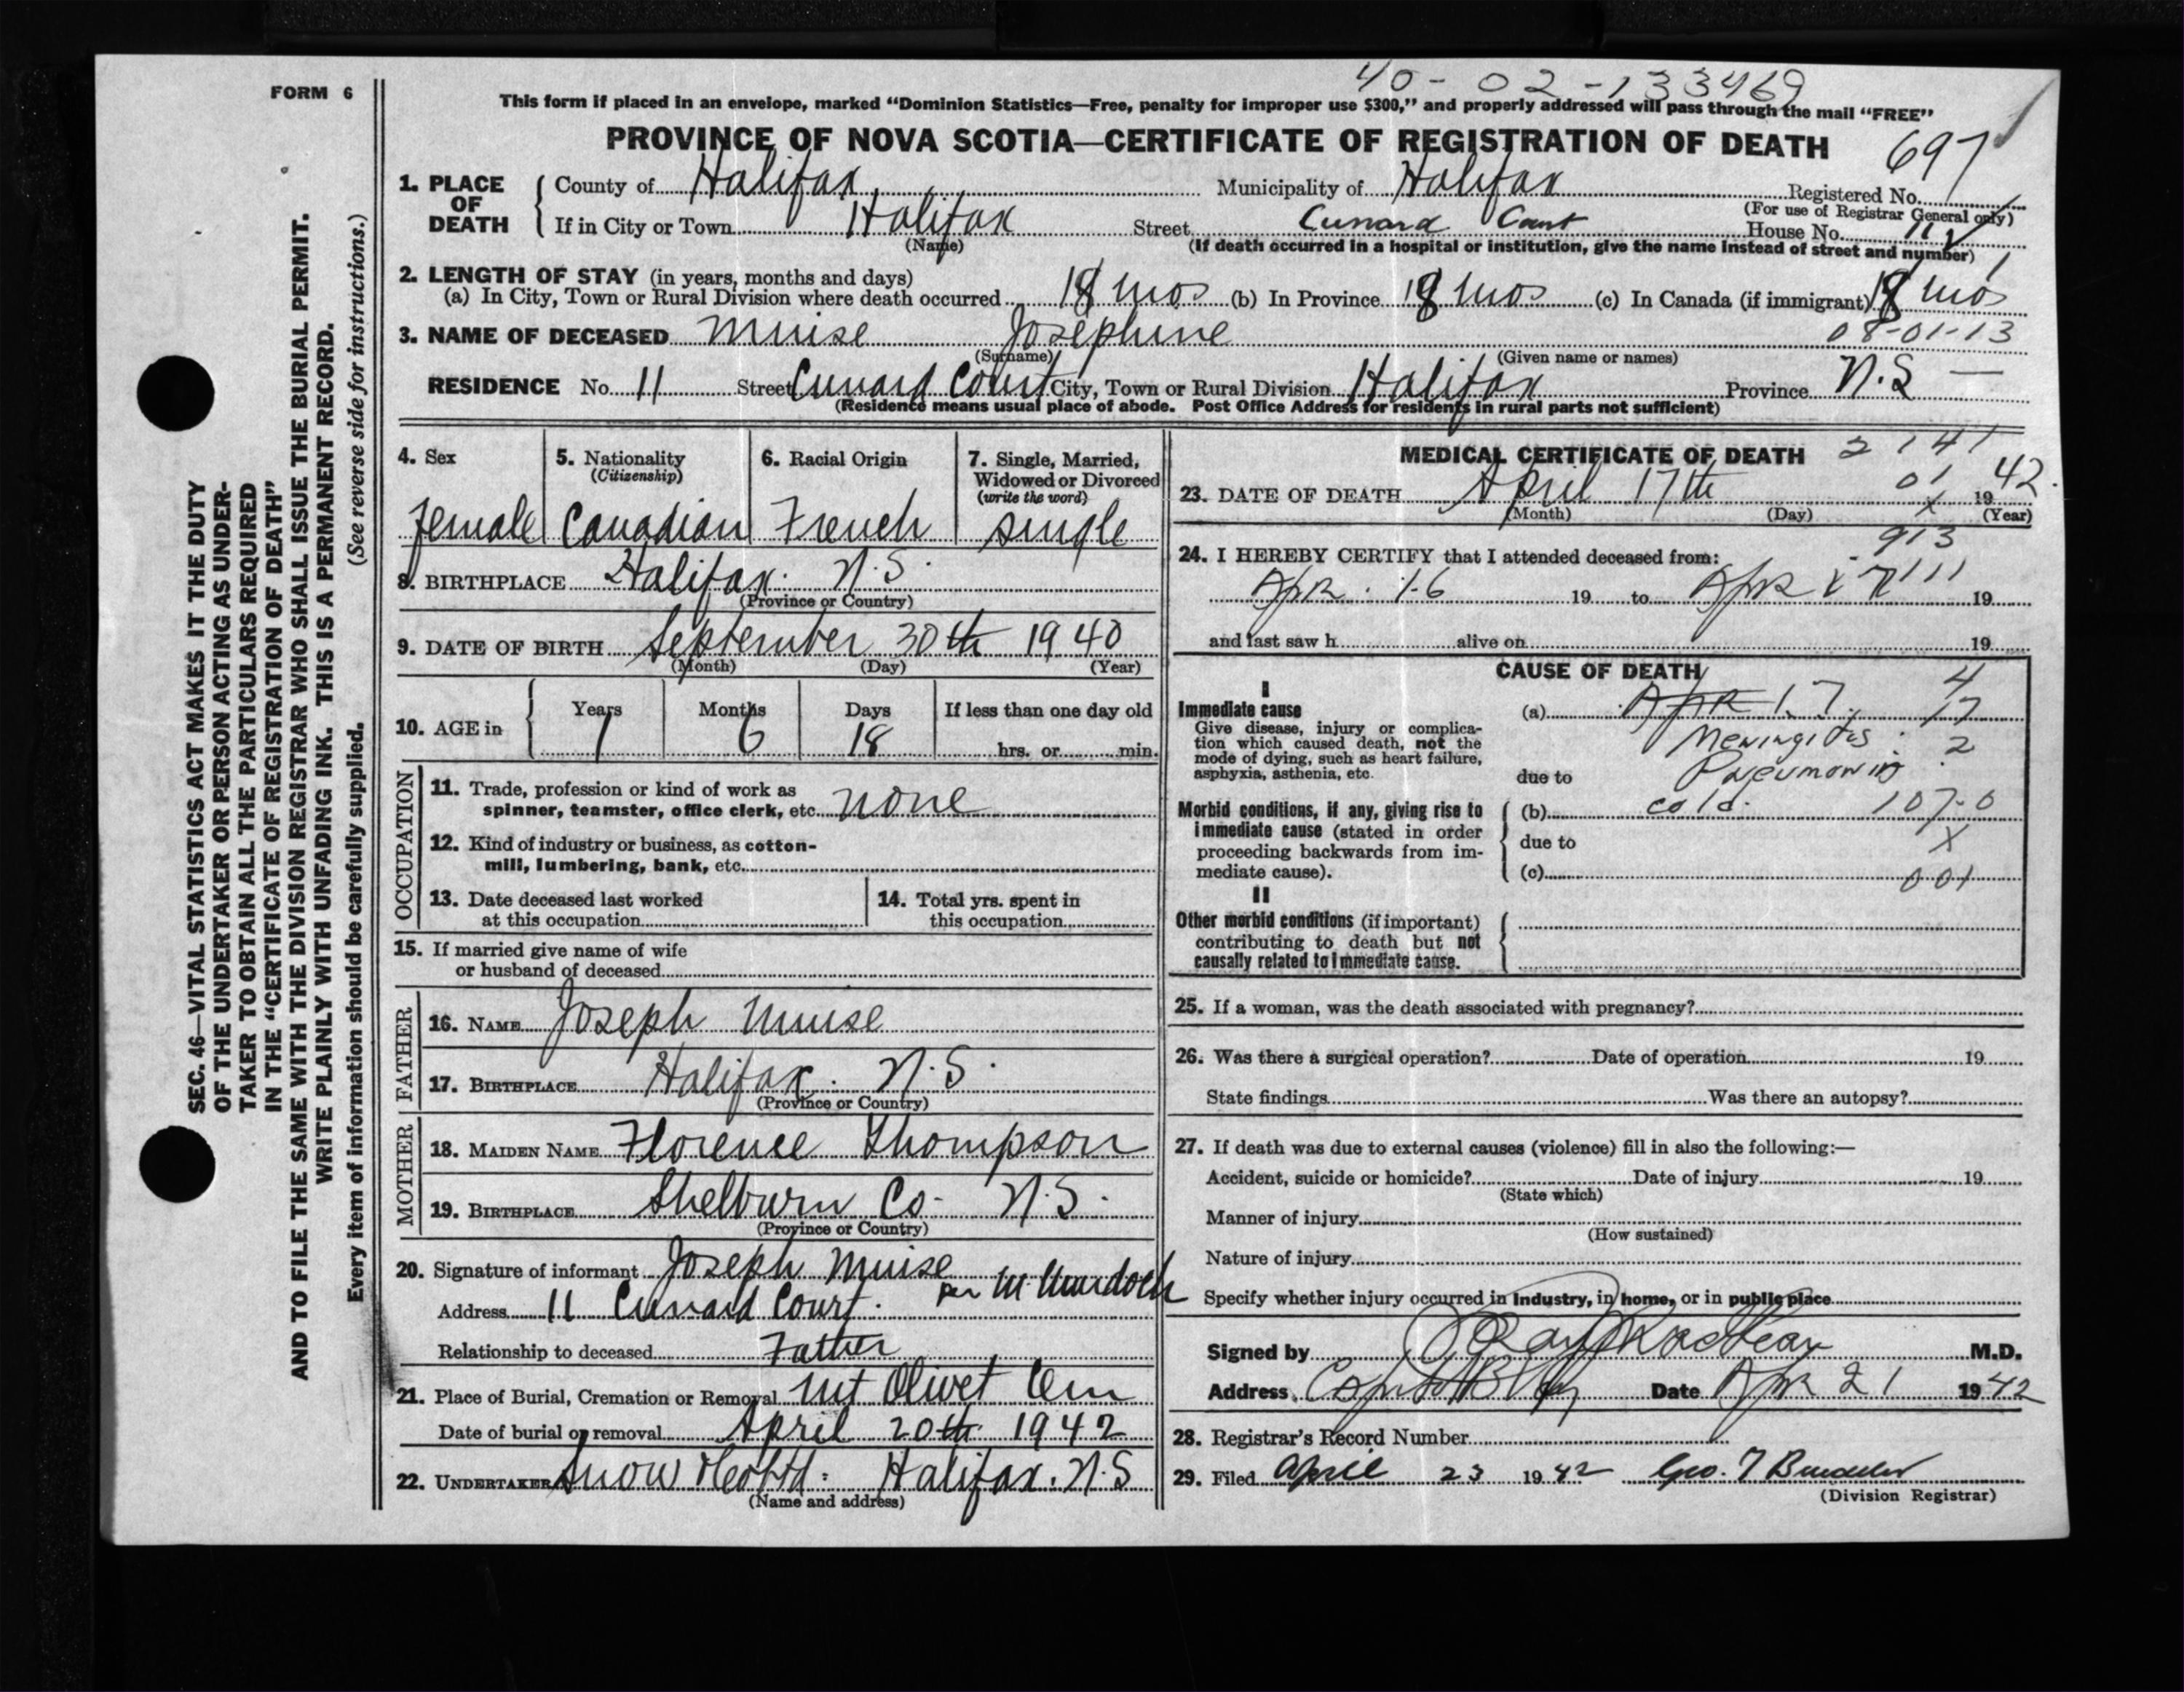 40-02-133469
FORM 6
This form if placed in an envelope, marked "Dominion Statistics—Free, penalty for improper use $300," and properly addressed will pass through the mail "FREE"
PROVINCE OF NOVA SCOTIA—CERTIFICATE OF REGISTRATION OF DEATH
697
1. PLACE OF DEATH
County of Halifax Municipality of Halifax Registered No.
(For use of Registrar General only)
If in City or Town Halifax Street Cunard Court House No. 11
(Name) (If death occurred in a hospital or institution, give the name instead of street and number)
2. LENGTH OF STAY (in years, months and days)
(a) In City, Town or Rural Division where death occurred 18 mos (b) In Province 18 mos (c) In Canada (if immigrant) 18 mos
3. NAME OF DECEASED Muise Josephine 08-01-13
(Surname) (Given name or names)
RESIDENCE No. 11 Street Cunard Court City, Town or Rural Division Halifax Province N.S —
(Residence means usual place of abode. Post Office Address for residents in rural parts not sufficient)
4. Sex
female
5. Nationality
(Citizenship)
Canadian
6. Racial Origin
French
7. Single, Married, Widowed or Divorced
(write the word)
single
8. BIRTHPLACE Halifax. N.S.
(Province or Country)
9. DATE OF BIRTH September 30th 1940
(Month) (Day) (Year)
10. AGE in Years Months Days If less than one day old
1 6 18 hrs. or min.
OCCUPATION
11. Trade, profession or kind of work as
spinner, teamster, office clerk, etc. none
12. Kind of industry or business, as cotton-
mill, lumbering, bank, etc.
13. Date deceased last worked
at this occupation
14. Total yrs. spent in
this occupation
15. If married give name of wife
or husband of deceased
FATHER
16. NAME Joseph Muise
17. BIRTHPLACE Halifax. N.S.
(Province or Country)
MOTHER
18. MAIDEN NAME Florence Thompson
19. BIRTHPLACE Shelburn Co- N.S.
(Province or Country)
20. Signature of informant Joseph Muise
per M Murdoch
Address 11 Cunard Court.
Relationship to deceased Father
21. Place of Burial, Cremation or Removal Mt Olivet Cem
Date of burial or removal April 20th 1942
22. UNDERTAKER Snow & Co Ltd. Halifax. N.S
(Name and address)
MEDICAL CERTIFICATE OF DEATH 2141
01
23. DATE OF DEATH April 17th 1942.
(Month) (Day) X (Year)
913
24. I HEREBY CERTIFY that I attended deceased from:
Apr. 16 19 to Apr 17 111 19
and last saw h alive on 19
CAUSE OF DEATH
I
Immediate cause
Give disease, injury or complica-
tion which caused death, not the
mode of dying, such as heart failure,
asphyxia, asthenia, etc.
4
(a) Apr 17. 17
Meningitis. 2
due to Pneumonia
Morbid conditions, if any, giving rise to
immediate cause (stated in order
proceeding backwards from im-
mediate cause).
(b) cold. 107-0
due to X
(c) 001
II
Other morbid conditions (if important)
contributing to death but not
causally related to immediate cause.
25. If a woman, was the death associated with pregnancy?
26. Was there a surgical operation? Date of operation 19
State findings Was there an autopsy?
27. If death was due to external causes (violence) fill in also the following:—
Accident, suicide or homicide? Date of injury 19
(State which)
Manner of injury
(How sustained)
Nature of injury
Specify whether injury occurred in Industry, in home, or in public place
Signed by M.D.
Address Date Apr 21 1942
28. Registrar's Record Number
29. Filed April 23 1942 Geo. T
(Division Registrar)
SEC. 46—VITAL STATISTICS ACT MAKES IT THE DUTY
OF THE UNDERTAKER OR PERSON ACTING AS UNDER-
TAKER TO OBTAIN ALL THE PARTICULARS REQUIRED
IN THE "CERTIFICATE OF REGISTRATION OF DEATH"
AND TO FILE THE SAME WITH THE DIVISION REGISTRAR WHO SHALL ISSUE THE BURIAL PERMIT.
WRITE PLAINLY WITH UNFADING INK. THIS IS A PERMANENT RECORD.
Every item of information should be carefully supplied. (See reverse side for instructions.)